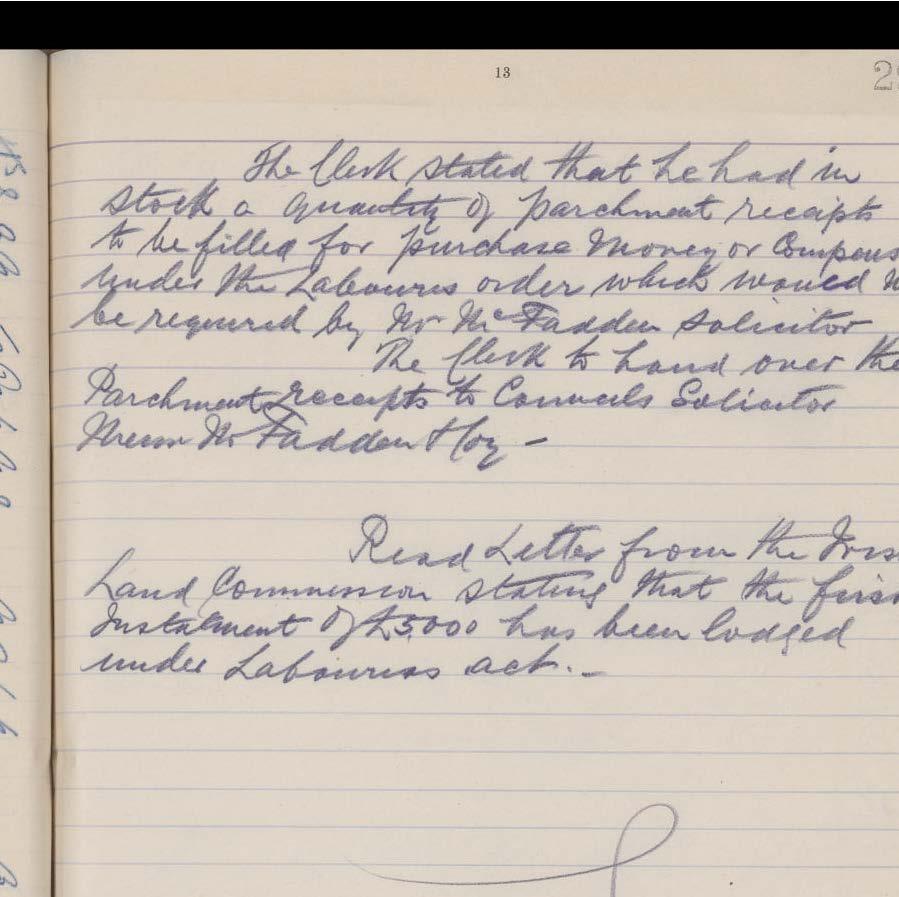 13
2
The Clerk stated that he had in
stock a quantity of parchment receipts
to be filled for purchase Money or Compens
under the Labourers order which would n
be required by Mr McFadden Solicitor
The Clerk to hand over the
Parchment receipts to Councils Solicitor
Messrs McFadden & Coy –
Read Letter from the Iris
Land Commission stating that the firs
Instalment of £5000 has been lodged
under Labourers act. –